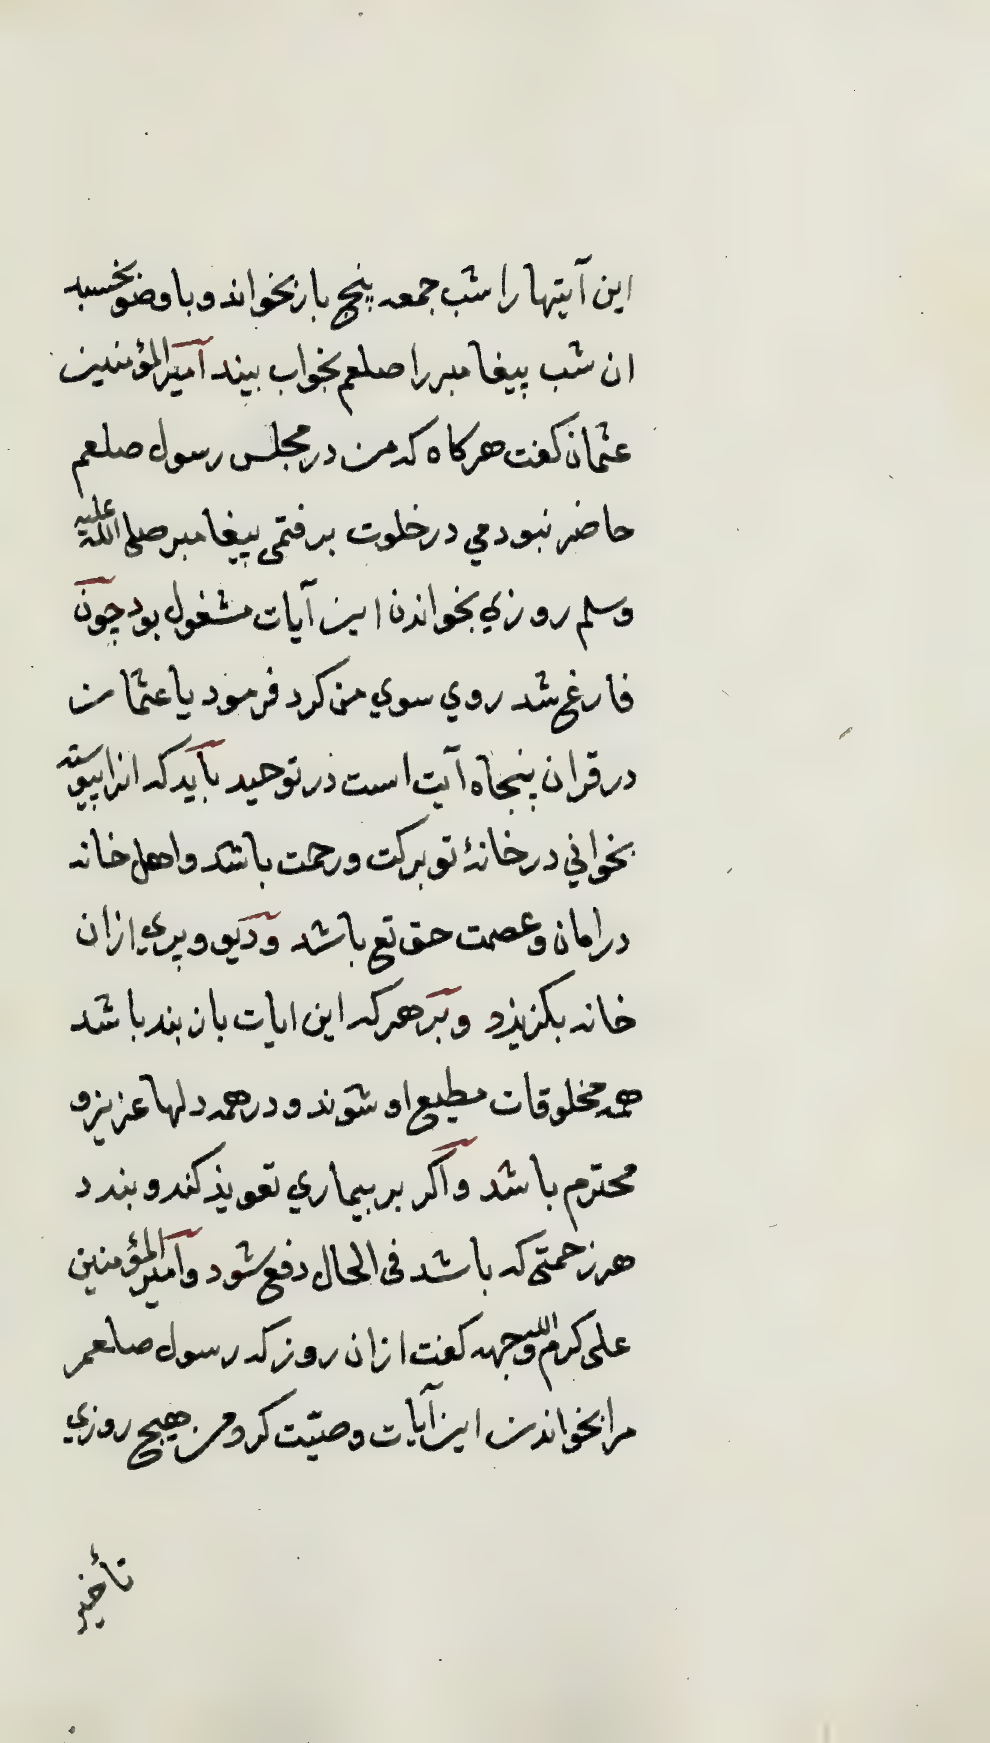 این آیتها را شب جمعه پنج بار بخواند و با وضو بخسبد
ان شب پیغامبر را صلعم بخواب بیند امیر المؤمنین
عثمان کفت هرکاه که من در مجلس رسول صلعم
حاضر نبودمي در خلوت برفتمی پیغامبر صلی الله علیه
وسلم روزي بخواندن این آیات مشغول بود چون
فارغ شد روي سوي من کرد فرمود یا عثمان
در قران پنجاه آیت است در توحید باید که انرا پیوسته
بخواني در خانهٔ تو برکت ورحمت باشد واهل خانه
در امان وعصمت حق تع باشد ودیو وپري از ان
خانه بکریزد وبر هرکه این ایات بازبند باشد
همه مخلوقات مطیع او شوند ودر همه دلها عزیز و
محترم باشد واکر بر بیماري تعویذ کند وبندد
هر زحمتی که باشد فی الحال دفع شود وامیر المؤمنین
علی کرم الله وجهه کفت از ان روز که رسول صلعم
مرا بخواندن این آیات وصیّت کرد من هیچ روزي
تأخیر